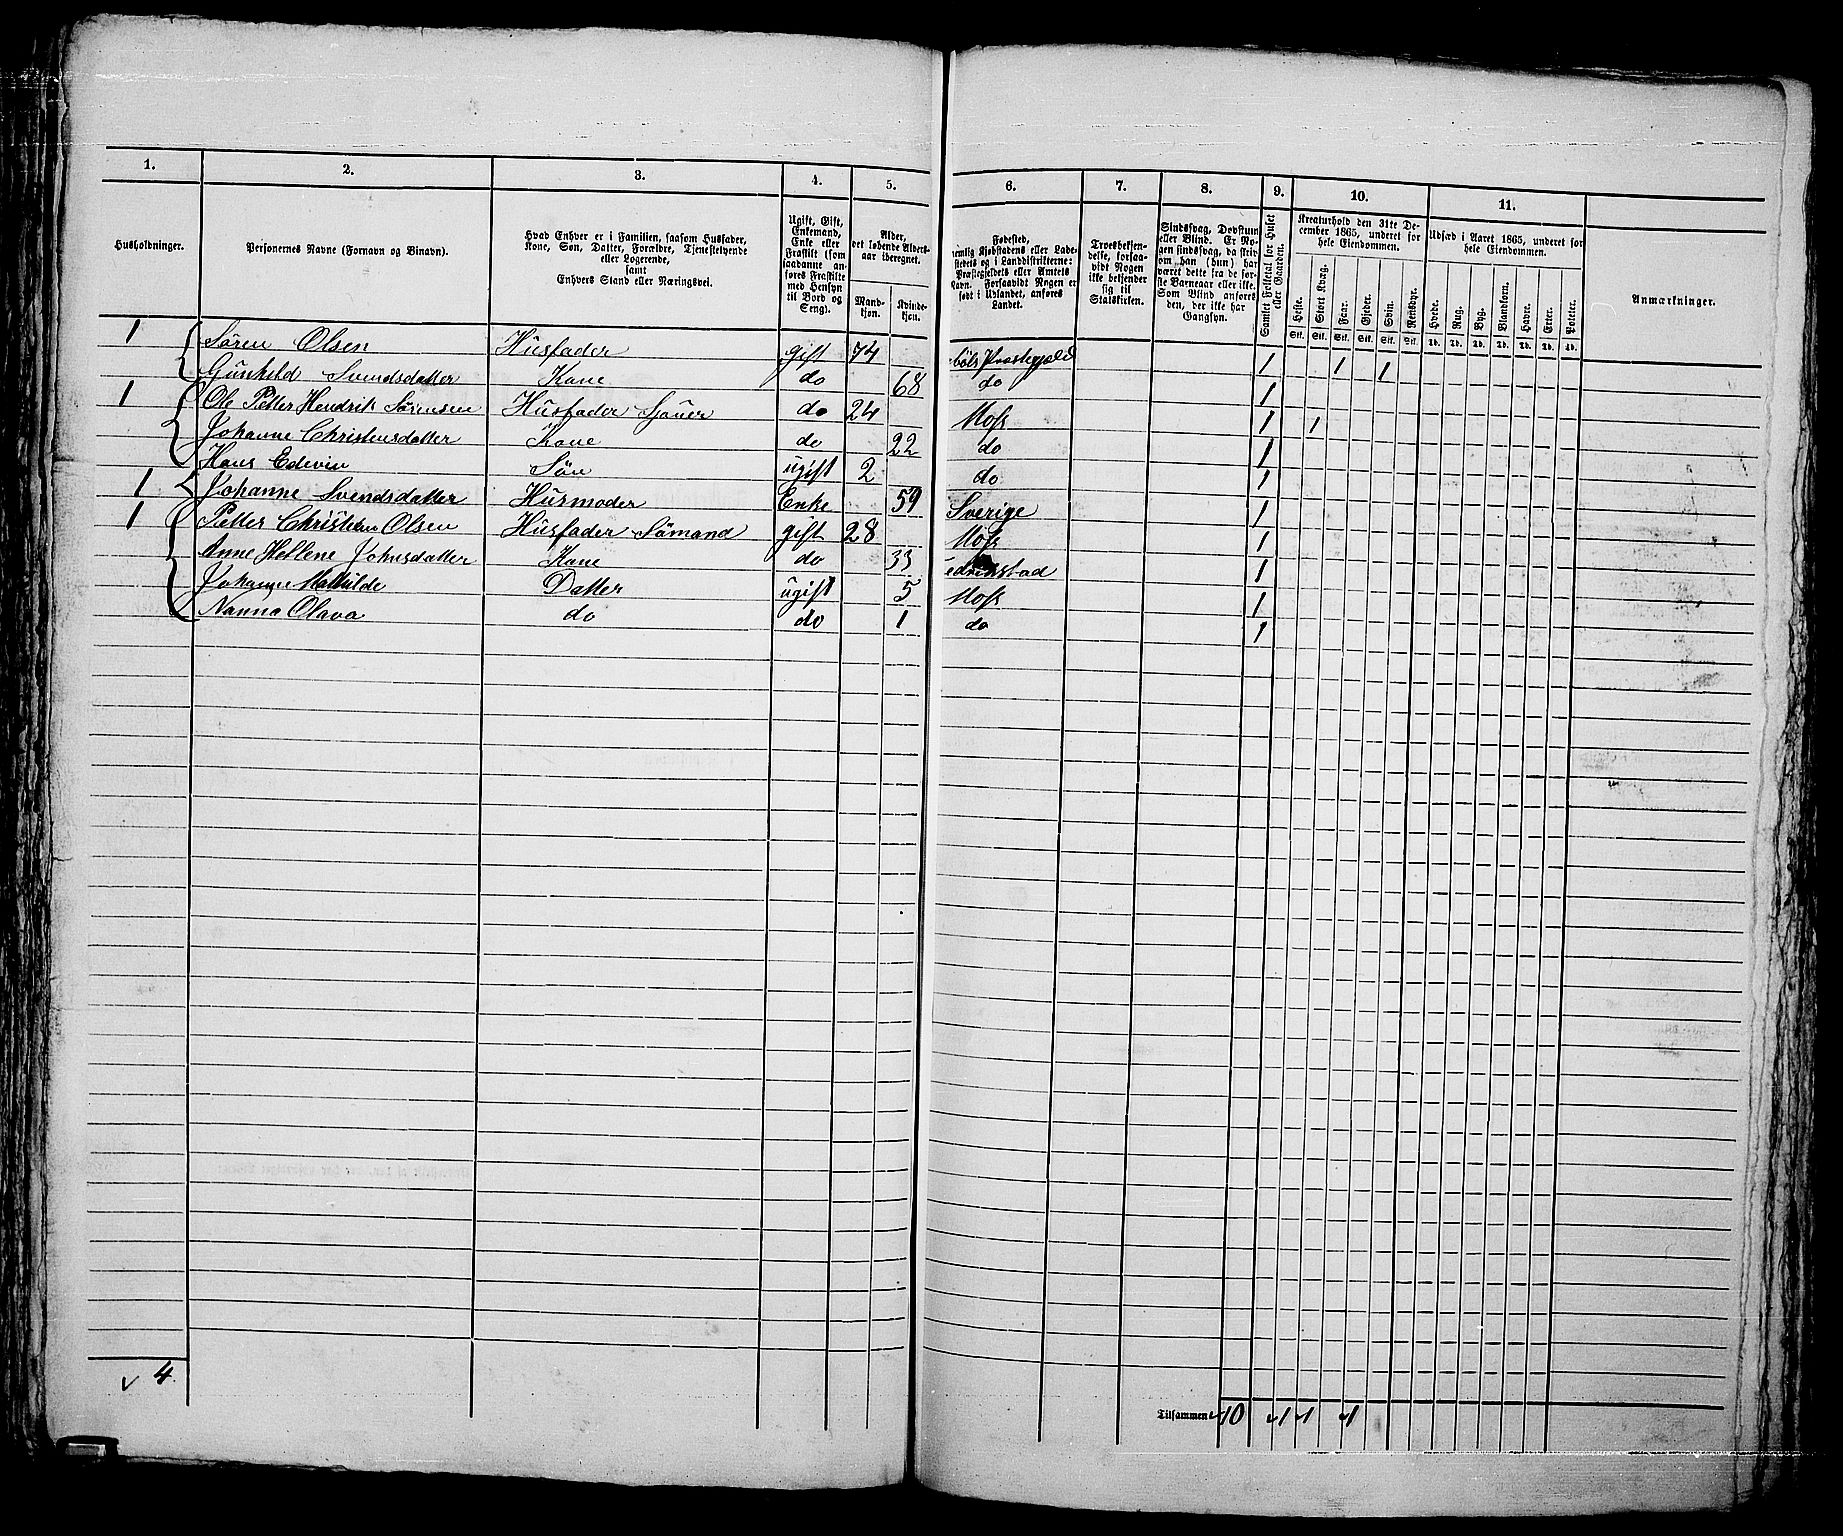 1. 2. 3. 4. 5. 6. 7. 8. 9. 10. 11.
Husholdninger.
Personernes Navne (Fornavn og Binavn).
Hvad Enhver er i Familien, saasom Husfader,
Kone, Søn, Datter, Forældre, Tjenestetyende
eller Logerende,
samt
Enhvers Stand eller Næringsvei.
Ugift, Gift,
Enkemand,
Enke eller
Fraskilt (som
saadanne an-
føres Fraskilte
med Hensyn
til Bord og
Seng).
Alder,
det løbende Alders-
aar iberegnet.
Mand-
kjøn.
Kvinde-
kjøn.
Fødested,
nemlig Kjøbstadens eller Lade-
stedets og i Landdistrikterne:
Præstegjeldets eller Amtets
Navn. Forsaavidt Nogen er
født i Udlandet, anføres
Landet.
Troesbekjen-
delse, forsaa-
vidt Nogen
ikke bekjender
sig til
Statskirken.
Sindssvag, Døvstum
eller Blind. Er No-
gen sindssvag, da skriv
om han (hun) har
været dette fra de før-
ste Barneaar eller ikke.
Som Blind anføres
den, der ikke har
Gangsyn.
Samlet Folketal for Huset
eller Gaarden.
Kreaturhold den 31te De-
cember 1865, underet for
hele Eiendommen.
Heste. Stort Kvæg. Faar. Gjeder. Svin. Rensdyr.
Stk. Stk. Stk. Stk. Stk. Stk.
Udsæd i Aaret 1865, underet for
hele Eiendommen.
Hvede. Rug. Byg. Blandkorn. Havre. Erter. Poteter.
Td. Td. Td. Td. Td. Td. Td.
Anmærkninger.
1 Søren Olsen Husfader gift 74 Præstegjeld 1 1 1
Gunhild Svendsdatter Kone do 68 do 1
1 Ole Petter Hendrik Sørensen Husfader Sjouer do 24 Moss 1 1
Johanne Christensdatter Kone do 22 do 1
Hans Edevin Søn ugift 2 do 1
1 Johanne Svendsdatter Husmoder Enke 59 Sverige 1
1 Petter Christian Olsen Husfader Sømand gift 28 Moss 1
Anne Hellene Johnsdatter Kone do 33 edrikstad 1
Johanne Mathilde Datter ugift 5 Moss 1
Nanna Olava do do 1 do 1
4
Tilsammen 10 1 1 1